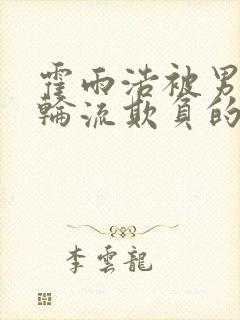 霍雨浩被男
輪流欺負的
李雲龍